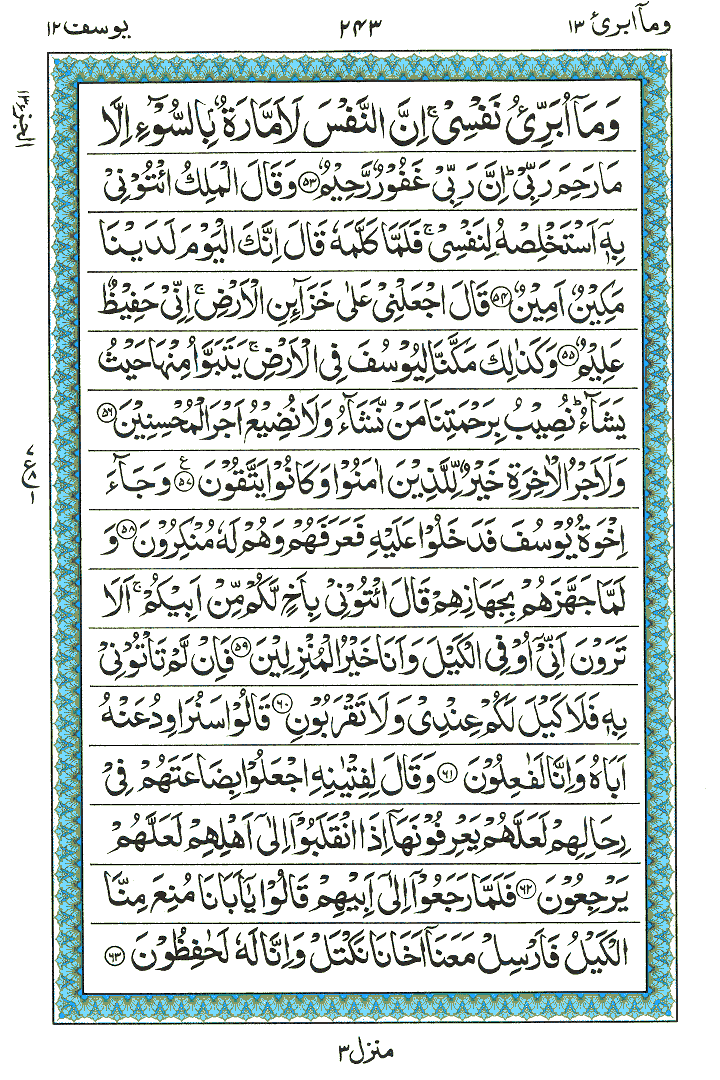 وما ابرئ ١٣ ٢٤٣ يوسف ١٢
الجزء ١٣
وَمَآ اُبَرِّئُ نَفۡسِىۡ‌ۚ اِنَّ النَّفۡسَ لَاَمَّارَةٌۢ بِالسُّوۡٓءِ اِلَّا
مَا رَحِمَ رَبِّىۡ‌ؕ اِنَّ رَبِّىۡ غَفُوۡرٌ رَّحِيۡمٌ‏ ﴿۵۳﴾ وَقَالَ الۡمَلِكُ ائۡتُوۡنِىۡ
بِهٖۤ اَسۡتَخۡلِصۡهُ لِنَفۡسِىۡ‌ۚ فَلَمَّا كَلَّمَهٗ قَالَ اِنَّكَ الۡيَوۡمَ لَدَيۡنَا
مَكِيۡنٌ اَمِيۡنٌ‏ ﴿۵۴﴾ قَالَ اجۡعَلۡنِىۡ عَلٰى خَزَآئِنِ الۡاَرۡضِ‌ۚ اِنِّىۡ حَفِيۡظٌ
عَلِيۡمٌ‏ ﴿۵۵﴾ وَكَذٰلِكَ مَكَّنَّا لِيُوۡسُفَ فِى الۡاَرۡضِ‌ۚ يَتَبَوَّاُ مِنۡهَا حَيۡثُ
يَشَآءُ‌ؕ نُصِيۡبُ بِرَحۡمَتِنَا مَنۡ نَّشَآءُ‌ وَلَا نُضِيۡعُ اَجۡرَ الۡمُحۡسِنِيۡنَ‏ ﴿۵۶﴾
وَلَاَجۡرُ الۡاٰخِرَةِ خَيۡرٌ لِّـلَّذِيۡنَ اٰمَنُوۡا وَكَانُوۡا يَتَّقُوۡنَ ﴿۵۷﴾ ع وَجَآءَ
٧ ع ٨ ١
اِخۡوَةُ يُوۡسُفَ فَدَخَلُوۡا عَلَيۡهِ فَعَرَفَهُمۡ وَهُمۡ لَهٗ مُنۡكِرُوۡنَ‏ ﴿۵۸﴾ وَ
لَمَّا جَهَّزَهُمۡ بِجَهَازِهِمۡ قَالَ ائۡتُوۡنِىۡ بِاَخٍ لَّكُمۡ مِّنۡ اَبِيۡكُمۡ‌ۚ اَلَا
تَرَوۡنَ اَنِّىۡۤ اُوۡفِى الۡكَيۡلَ وَاَنَا خَيۡرُ الۡمُنۡزِلِيۡنَ‏ ﴿۵۹﴾ فَاِنۡ لَّمۡ تَاۡتُوۡنِىۡ
بِهٖ فَلَا كَيۡلَ لَـكُمۡ عِنۡدِىۡ وَلَا تَقۡرَبُوۡنِ‏ ﴿۶۰﴾ قَالُوۡا سَنُرَاوِدُ عَنۡهُ
اَبَاهُ وَاِنَّا لَفٰعِلُوۡنَ‏ ﴿۶۱﴾ وَقَالَ لِفِتۡيٰنِهِ اجۡعَلُوۡا بِضَاعَتَهُمۡ فِىۡ
رِحَالِهِمۡ لَعَلَّهُمۡ يَعۡرِفُوۡنَهَاۤ اِذَا انْقَلَبُوۡۤا اِلٰٓى اَهۡلِهِمۡ لَعَلَّهُمۡ
يَرۡجِعُوۡنَ‏ ﴿۶۲﴾ فَلَمَّا رَجَعُوۡۤا اِلٰٓى اَبِيۡهِمۡ قَالُوۡا يٰۤاَبَانَا مُنِعَ مِنَّا
الۡكَيۡلُ فَاَرۡسِلۡ مَعَنَاۤ اَخَانَا نَكۡتَلۡ وَاِنَّا لَهٗ لَحٰـفِظُوۡنَ‏ ﴿۶۳﴾
منزل ٣